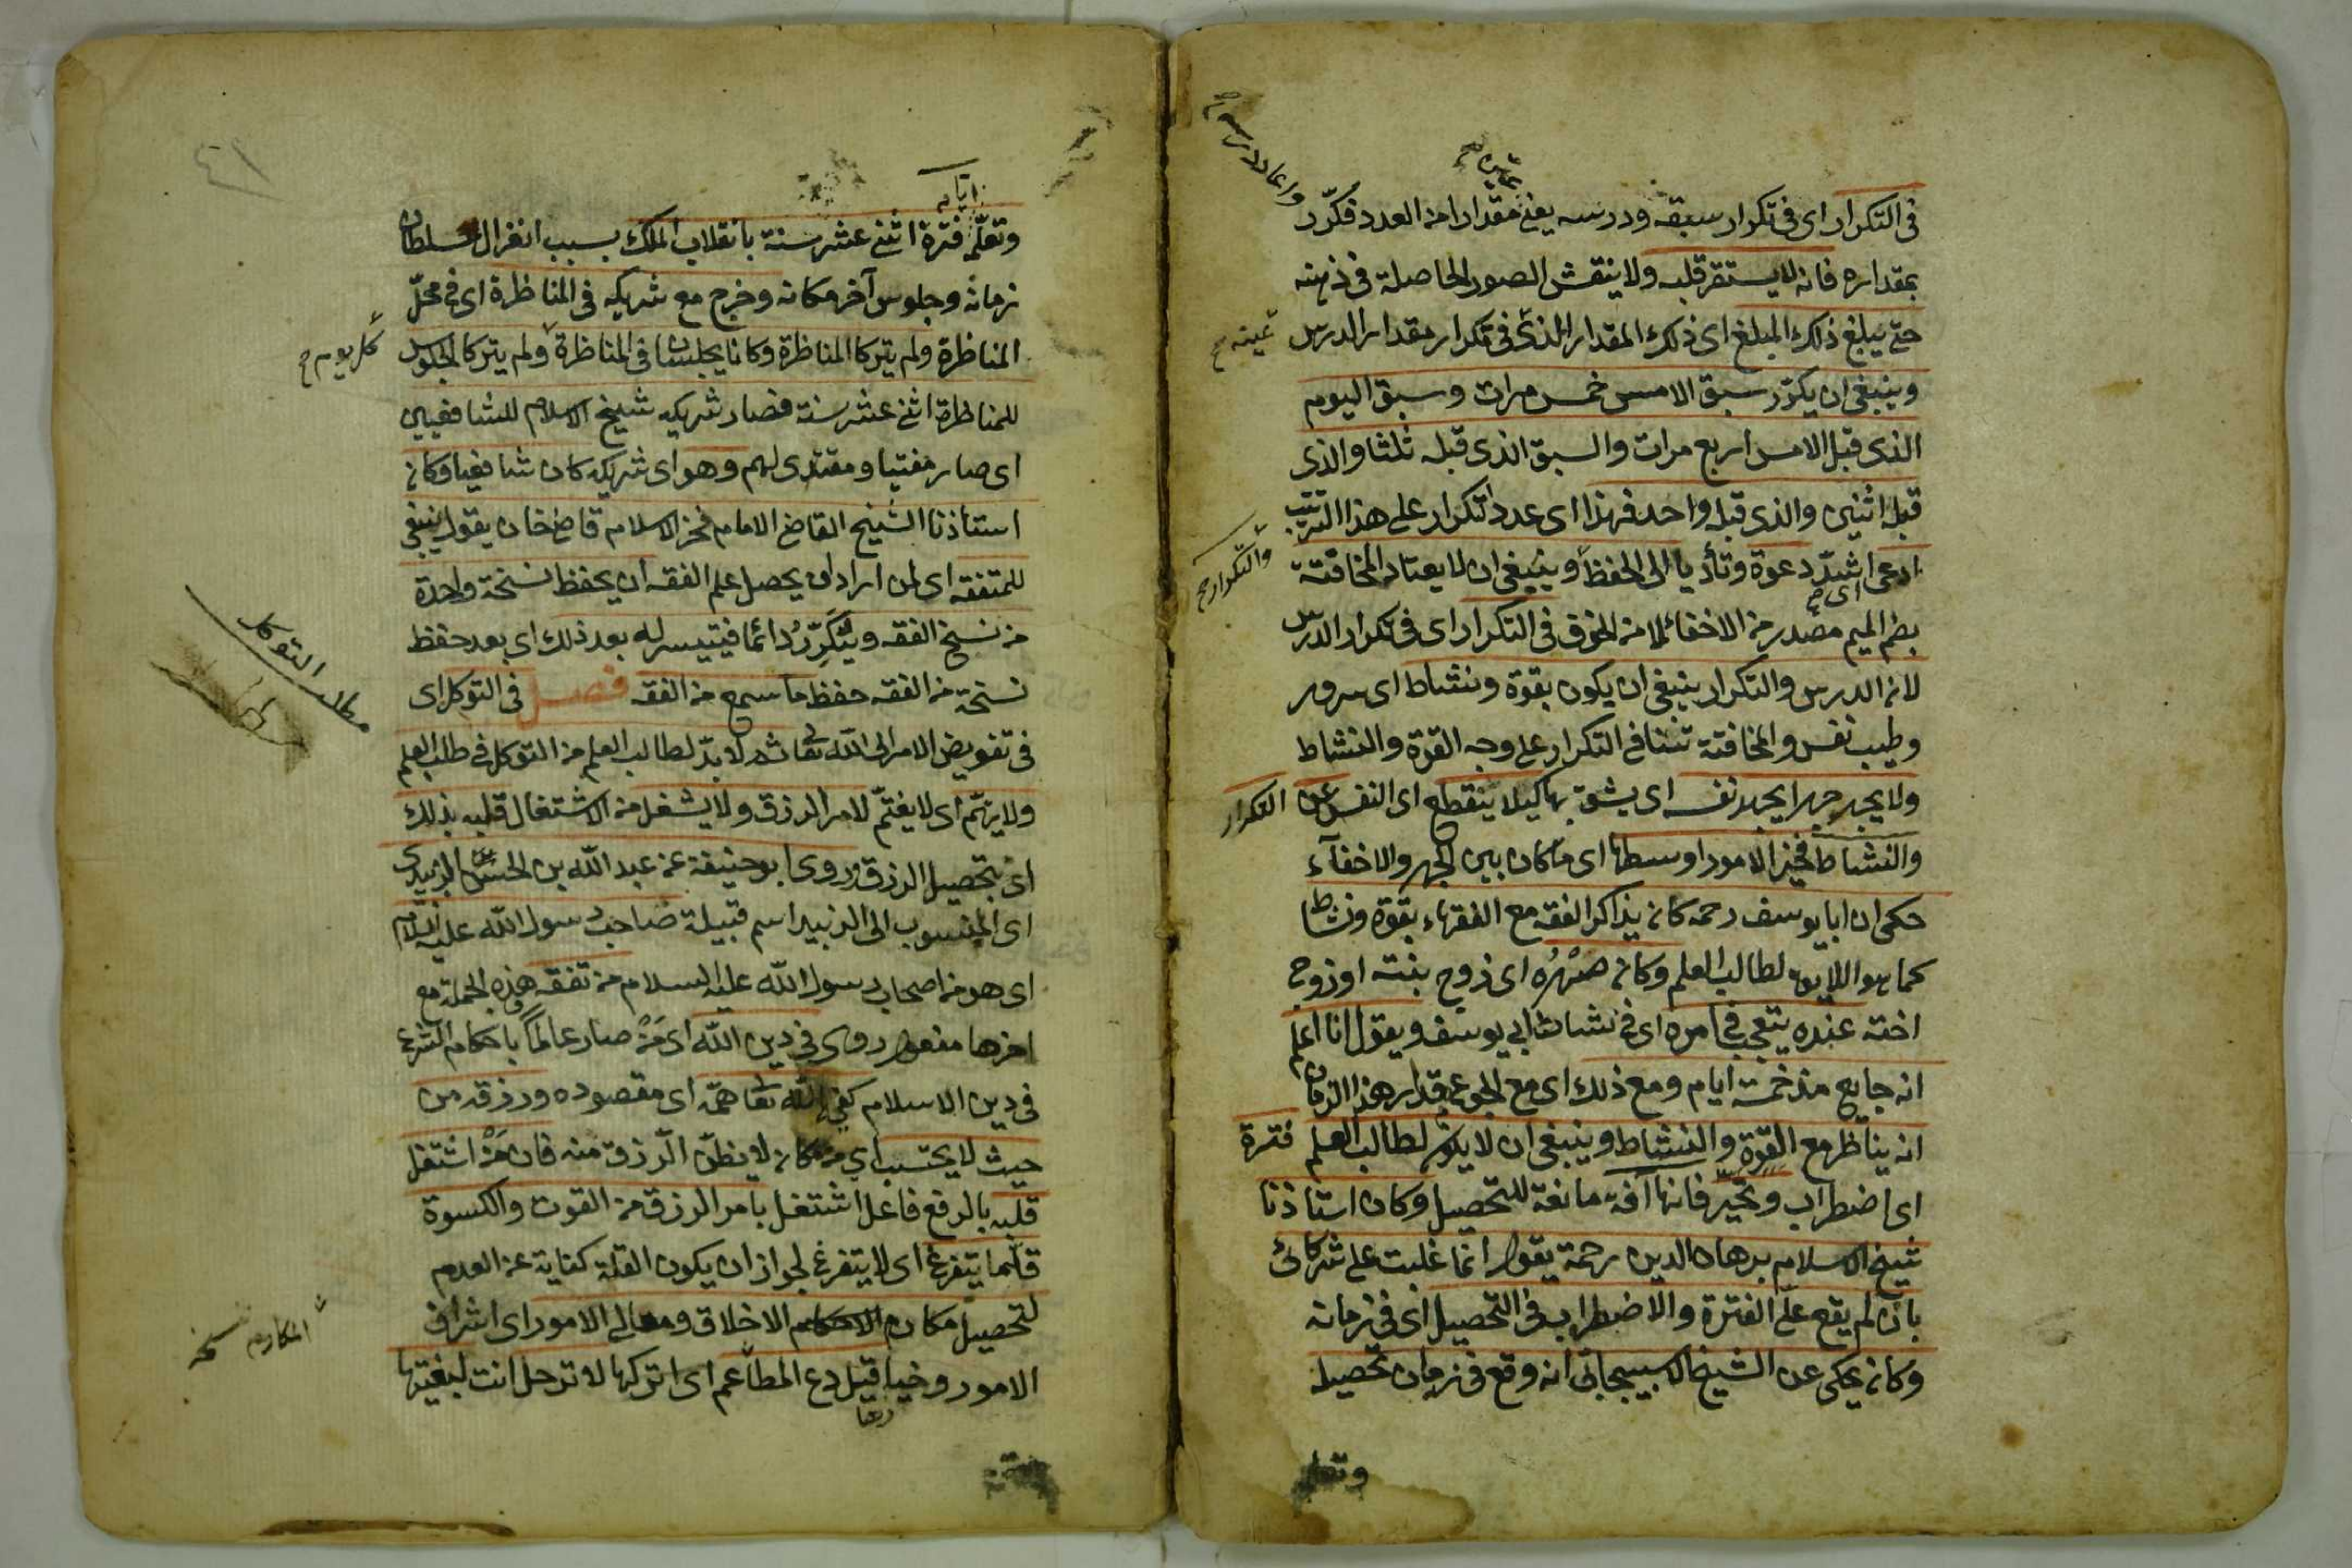 فى التكرار اى فى تكرار سبقه ودرسه يعنى مقدارا من العدد فكرّر
بمقداره فانه لا يستقر قلبه ولا ينقش الصور الحاصلة فى ذهنه
حتى يبلغ ذلك المبلغ اى ذلك المقدار الذى فى تكرار مقدار الدرس
وينبغى ان يكرّر سبق الامس خمس مرات وسبق اليوم
الذى قبل الامس اربع مرات والسبق الذى قبله ثلثا والذى
قبله اثنين والذى قبله واحد فهذا اى عدد التكرار على هذا الترتيب
ادعى اى اشدّ دعوة وتأديا الى الحفظ وينبغى ان لا يعتاد المخافتة
والتكرار
بضم الميم مصدر من الاخفاء لا من الخوف فى التكرار اى فى تكرار الدرس
لان الدرس والتكرار ينبغى ان يكون بقوة ونشاط اى سرور
وطيب نفس والمخافتة تنافى التكرار على وجه القوة والنشاط
ولا يجهر جهرا يجهد نفسه اى يشق بها كيلا ينقطع اى النفس عن التكرار
والنشاط فخير الامور اوسطها اى ما كان بين الجهر والاخفآء
حكى ان ابا يوسف رحمه كان يذاكر الفقه مع الفقهاء بقوة ونشاط
كما هو اللايق لطالب العلم وكان صهْرُه اى زوج بنته او زوج
اخته عنده يتعجب فى امره اى فى نشاط ابى يوسف ويقول انا اعلم
انه جايع منذ خمسة ايام ومع ذلك اى مع الجوع بقدار هذا الزمان
انه يناظر مع القوة والنشاط وينبغى ان لا يكون لطالب العلم فترة
اى اضطراب وتحيّر فانها آفة مانعة للتحصيل وكان استاذنا
شيخ الاسلام برهان الدين رحمة يقول انما غلبت على شركائى
بان لم يقع علىّ الفترة والاضطراب فى التحصيل اى فى زمانه
وكان يحكى عن الشيخ الاسبيجابى انه وقع فى زمان تحصيله
وتعلمه
٤١
ايام
وتعلّمه فترة اثنى عشر سنة بانقلاب الملك بسبب انعزال سلطان
زمانه وجلوس آخر مكانه وخرج مع شريكه فى المناظرة اى فى محلّ
المناظرة ولم يتركا المناظرة وكانا يجلسان فى المناظرة ولم يتركا الجلوس
كل يوم
للمناظرة اثنى عشر سنة فصار شريكه شيخ الاسلام للشافعيين
اى صار مفتيا ومقتدى لهم وهو اى شريكه كان شافعيا وكان
استاذنا الشيخ القاضى الامام فخر الاسلام قاضى خان يقول ينبغى
للمتفقه اى لمن اراد ان يحصل علم الفقه ان يحفظ نسخة واحدة
من نسخ الفقه ويُكَرِّرُ دائما فيتيسر له بعد ذلك اى بعد حفظ
نسخة من الفقه حفظ ما سمع من الفقه فصل فى التوكل اى
مطلب التوكل
فى تفويض الامر الى الله تعالى ثم لا بدّ لطالب العلم من التوكل فى طلب العلم
ولا يهتم اى لا يغتمّ لامر الرزق ولا يشغل من الاشتغال قلبه بذلك
اى بتحصيل الرزق وروى ابو حنيفة عن عبد الله بن الحسن الزبيدى
اى المنسوب الى الزبيد اسم قبيلة صاحب رسول الله عليه السلام
اى هو من اصحاب رسول الله عليه السلام من تفقه هذه الجملة مع
اخرها مفعول روى فى دين الله اى مَنْ صار عالماً باحكام الشرع
فى دين الاسلام كفى الله تعالى همّه اى مقصوده ورزقه من
حيث لا يحتسب اى من مكان لا يظنّ الرزق منه فان مَنْ اشتغل
قلبه بالرفع فاعل اشتغل بامر الرزق من القوت والكسوة
قلّما يتفرغ اى لا يتفرغ لجواز ان يكون القلة كناية عن العدم
لتحصيل مكارم الاخلاق ومعالى الامور اى اشراف
المكارم نسخه
الامور وخيا قيل دع المطاعم اى اتركها لا ترحل انت لبغيتها
رها